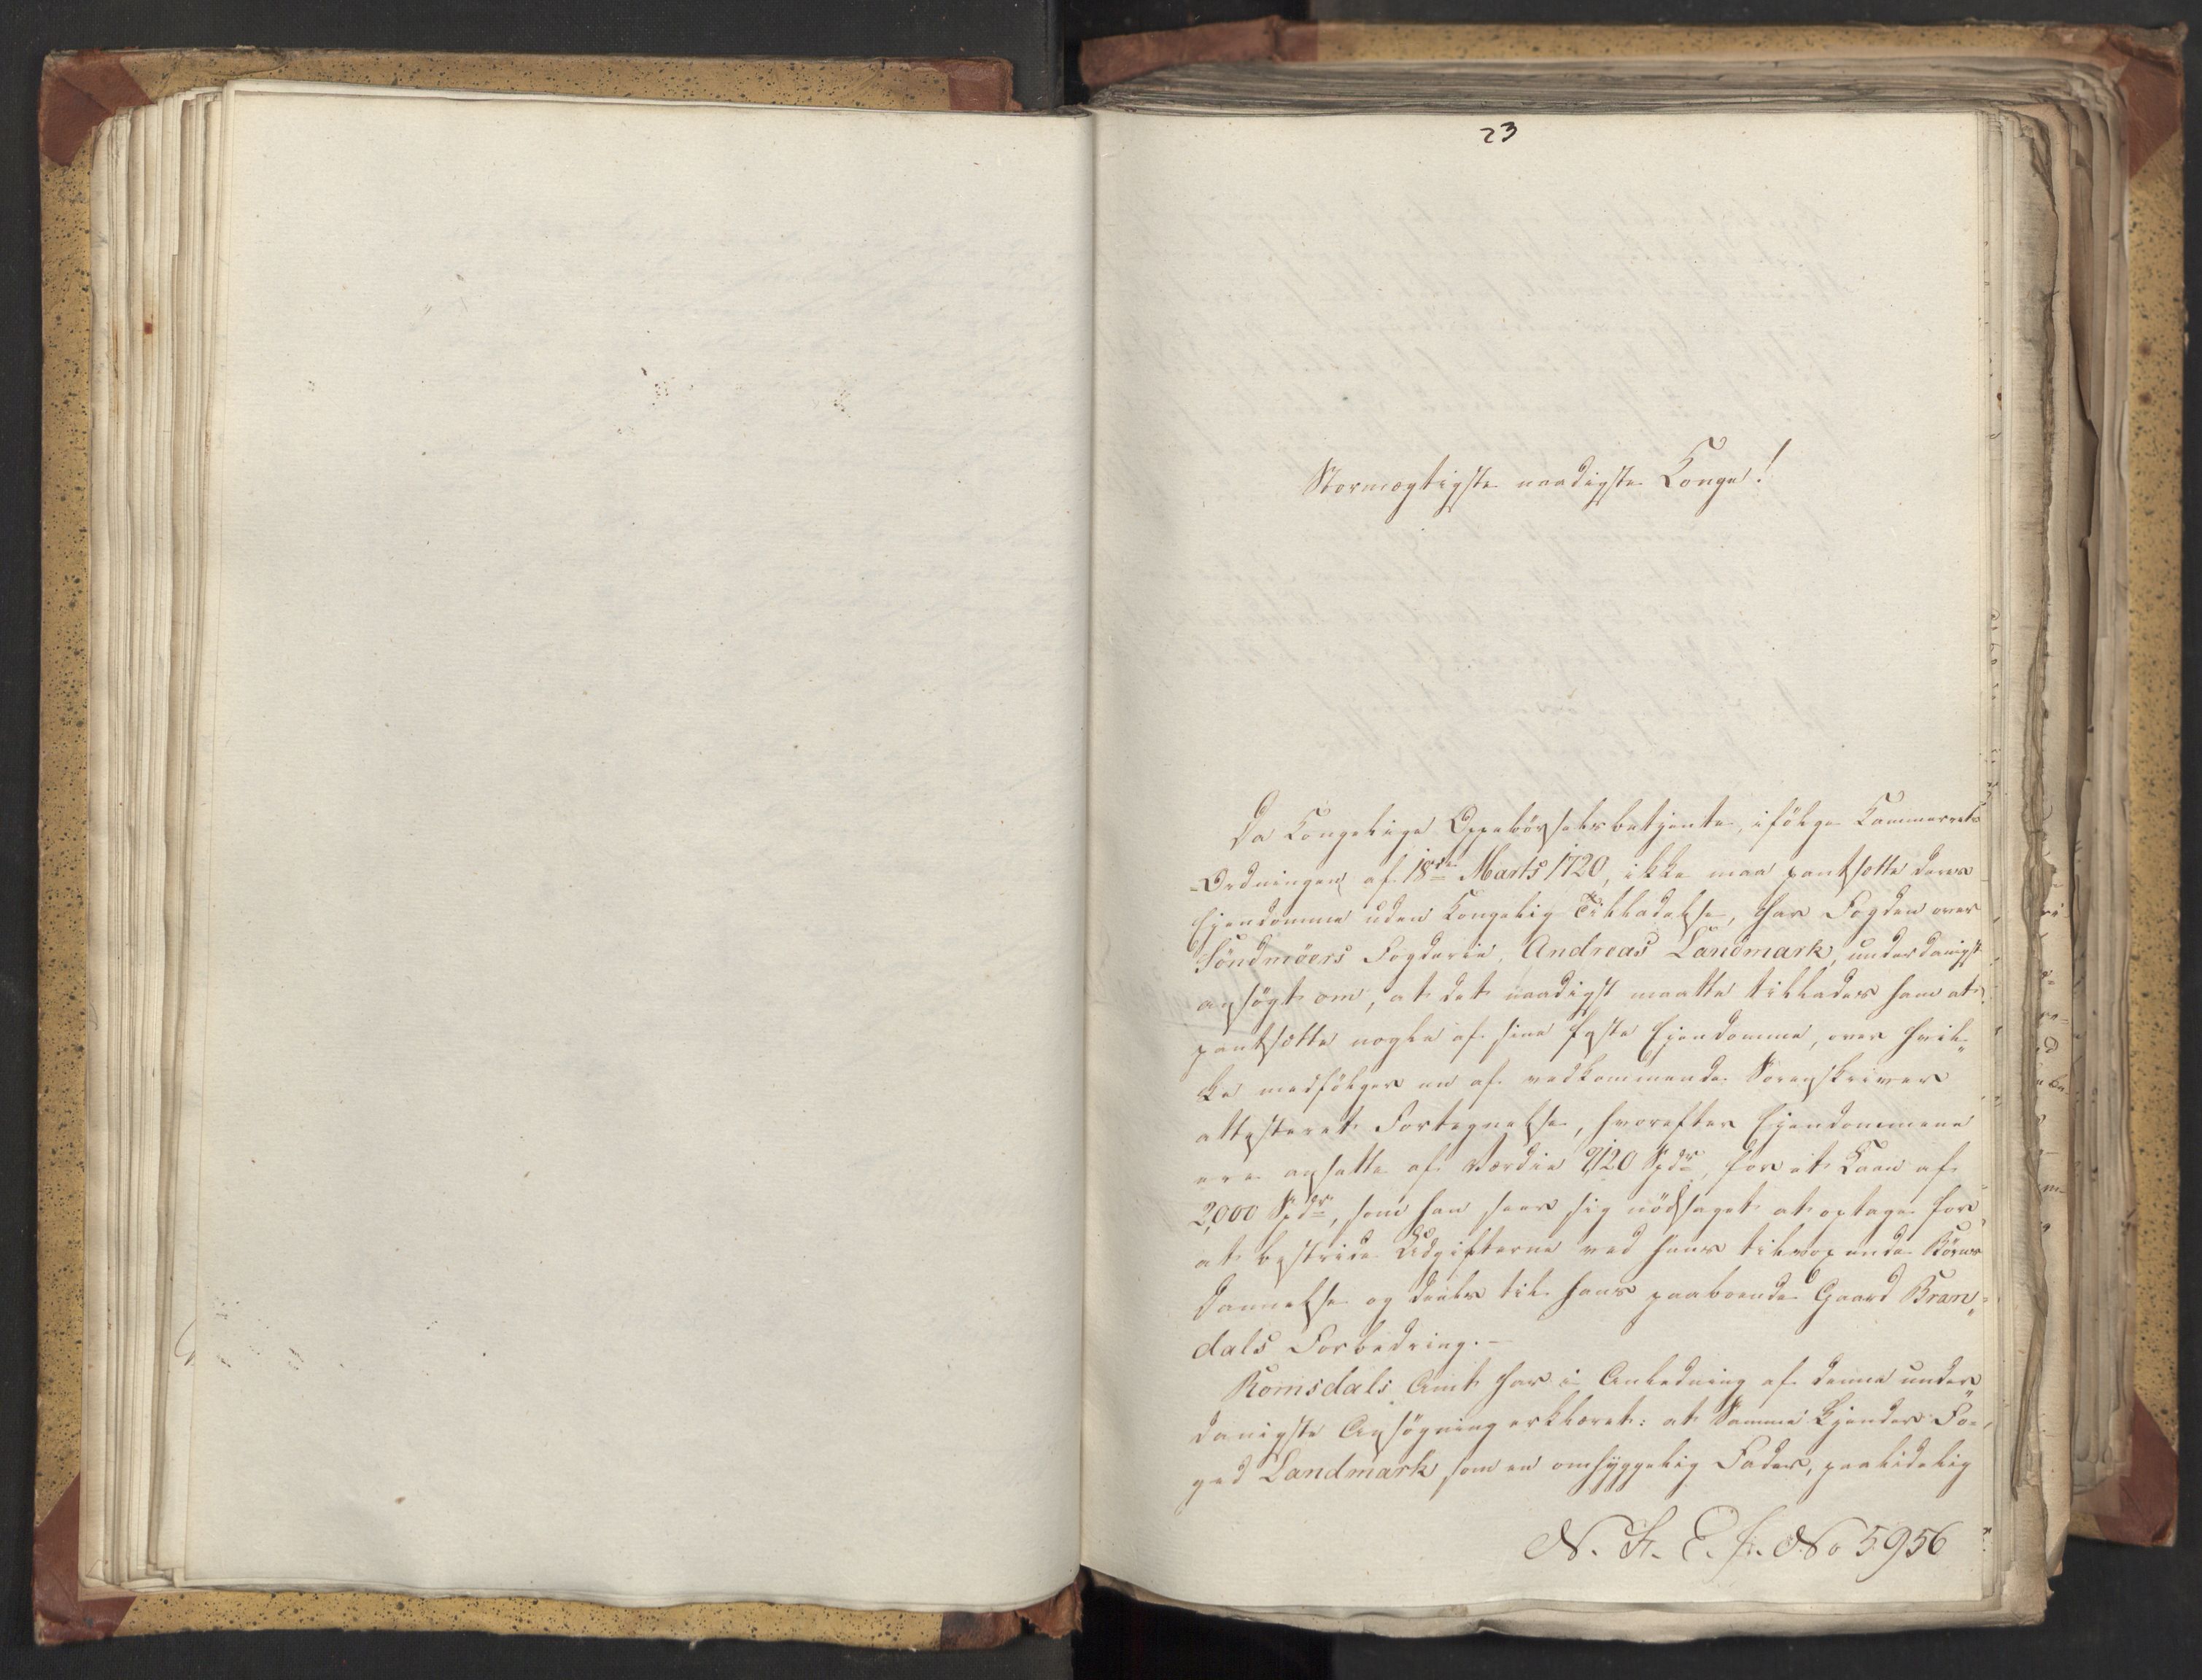 23
Stormægtigste naadigste Konge!
Da Kongelige Oppebörselsbetjente, ifölge Kammerrets
-Ordningen af 18de Marts 1720, ikke maa pantsætte deres
Ejendomme uden Kongelig Tilladelse, har Fogden over
Söndmöers Fogderie, Andreas Landmark, underdanigst
ansögt om, at det naadigst maatte tillades ham at
pantsætte nogle af sine faste Ejendomme, over hvil„
ke medfölger en af vedkommende Sorenskriver
attesteret Fortegnelse, hvorefter Ejendommene
ere ansatte af Værdie 9,120 Spdr, for et Laan af
2,000 Spdr, som han seer sig nödsaget at optage for
at bestride Udgifterne ved hans tilvoxende Börns
Dannelse og deels til hans paaboende Gaard Bran„
dals Forbedring.-
Romsdals Amt har i Anledning af denne under„
danigste Ansögning erklæret: at Samme kjender Fo„
ged Landmark som en omhyggelig Fader, paalidelig
No 5956